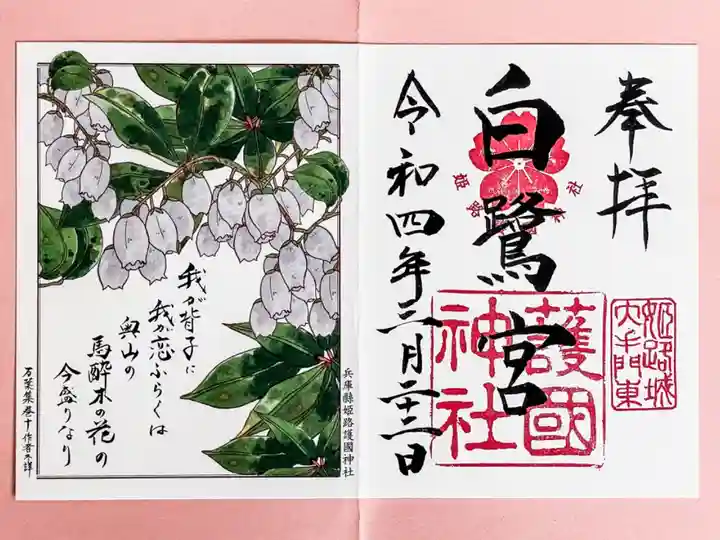 奉拝
姫路城
大手門東
白鷺宮
護國
神社
令和四年三月二十三日
兵庫縣姫路護國神社
我が背子に
我が恋ふらくは
奥山の
馬酔木の花の
今盛りなり
万葉集巻十作者不詳